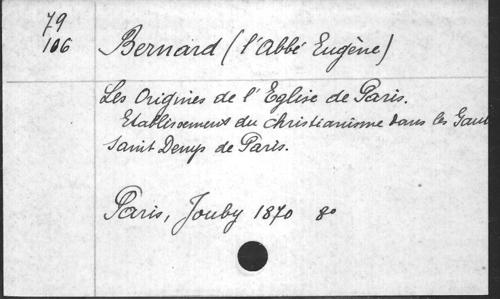 79
106
Bernard (l'Abbé Eugène)
Les Origines de l'Eglise de Paris.
Etablissement du Christianisme dans les Gaul
Saint Denys de Paris.
Paris, Jouby 1870 8º